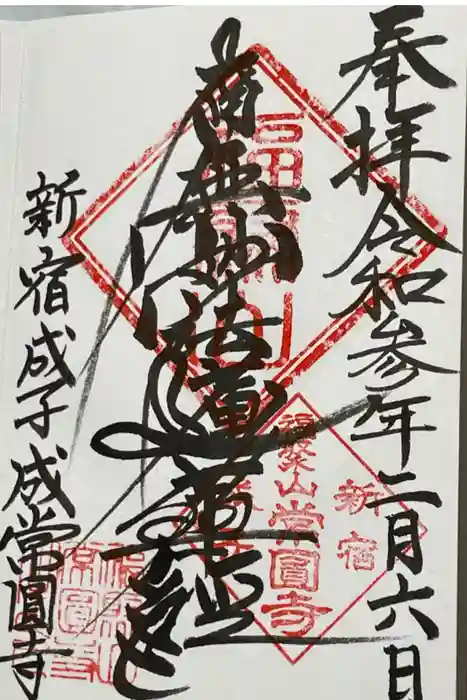 奉拝令和参年二月六日
南無妙法蓮華経
新宿成子成常圓寺
新宿
福聚山常圓寺